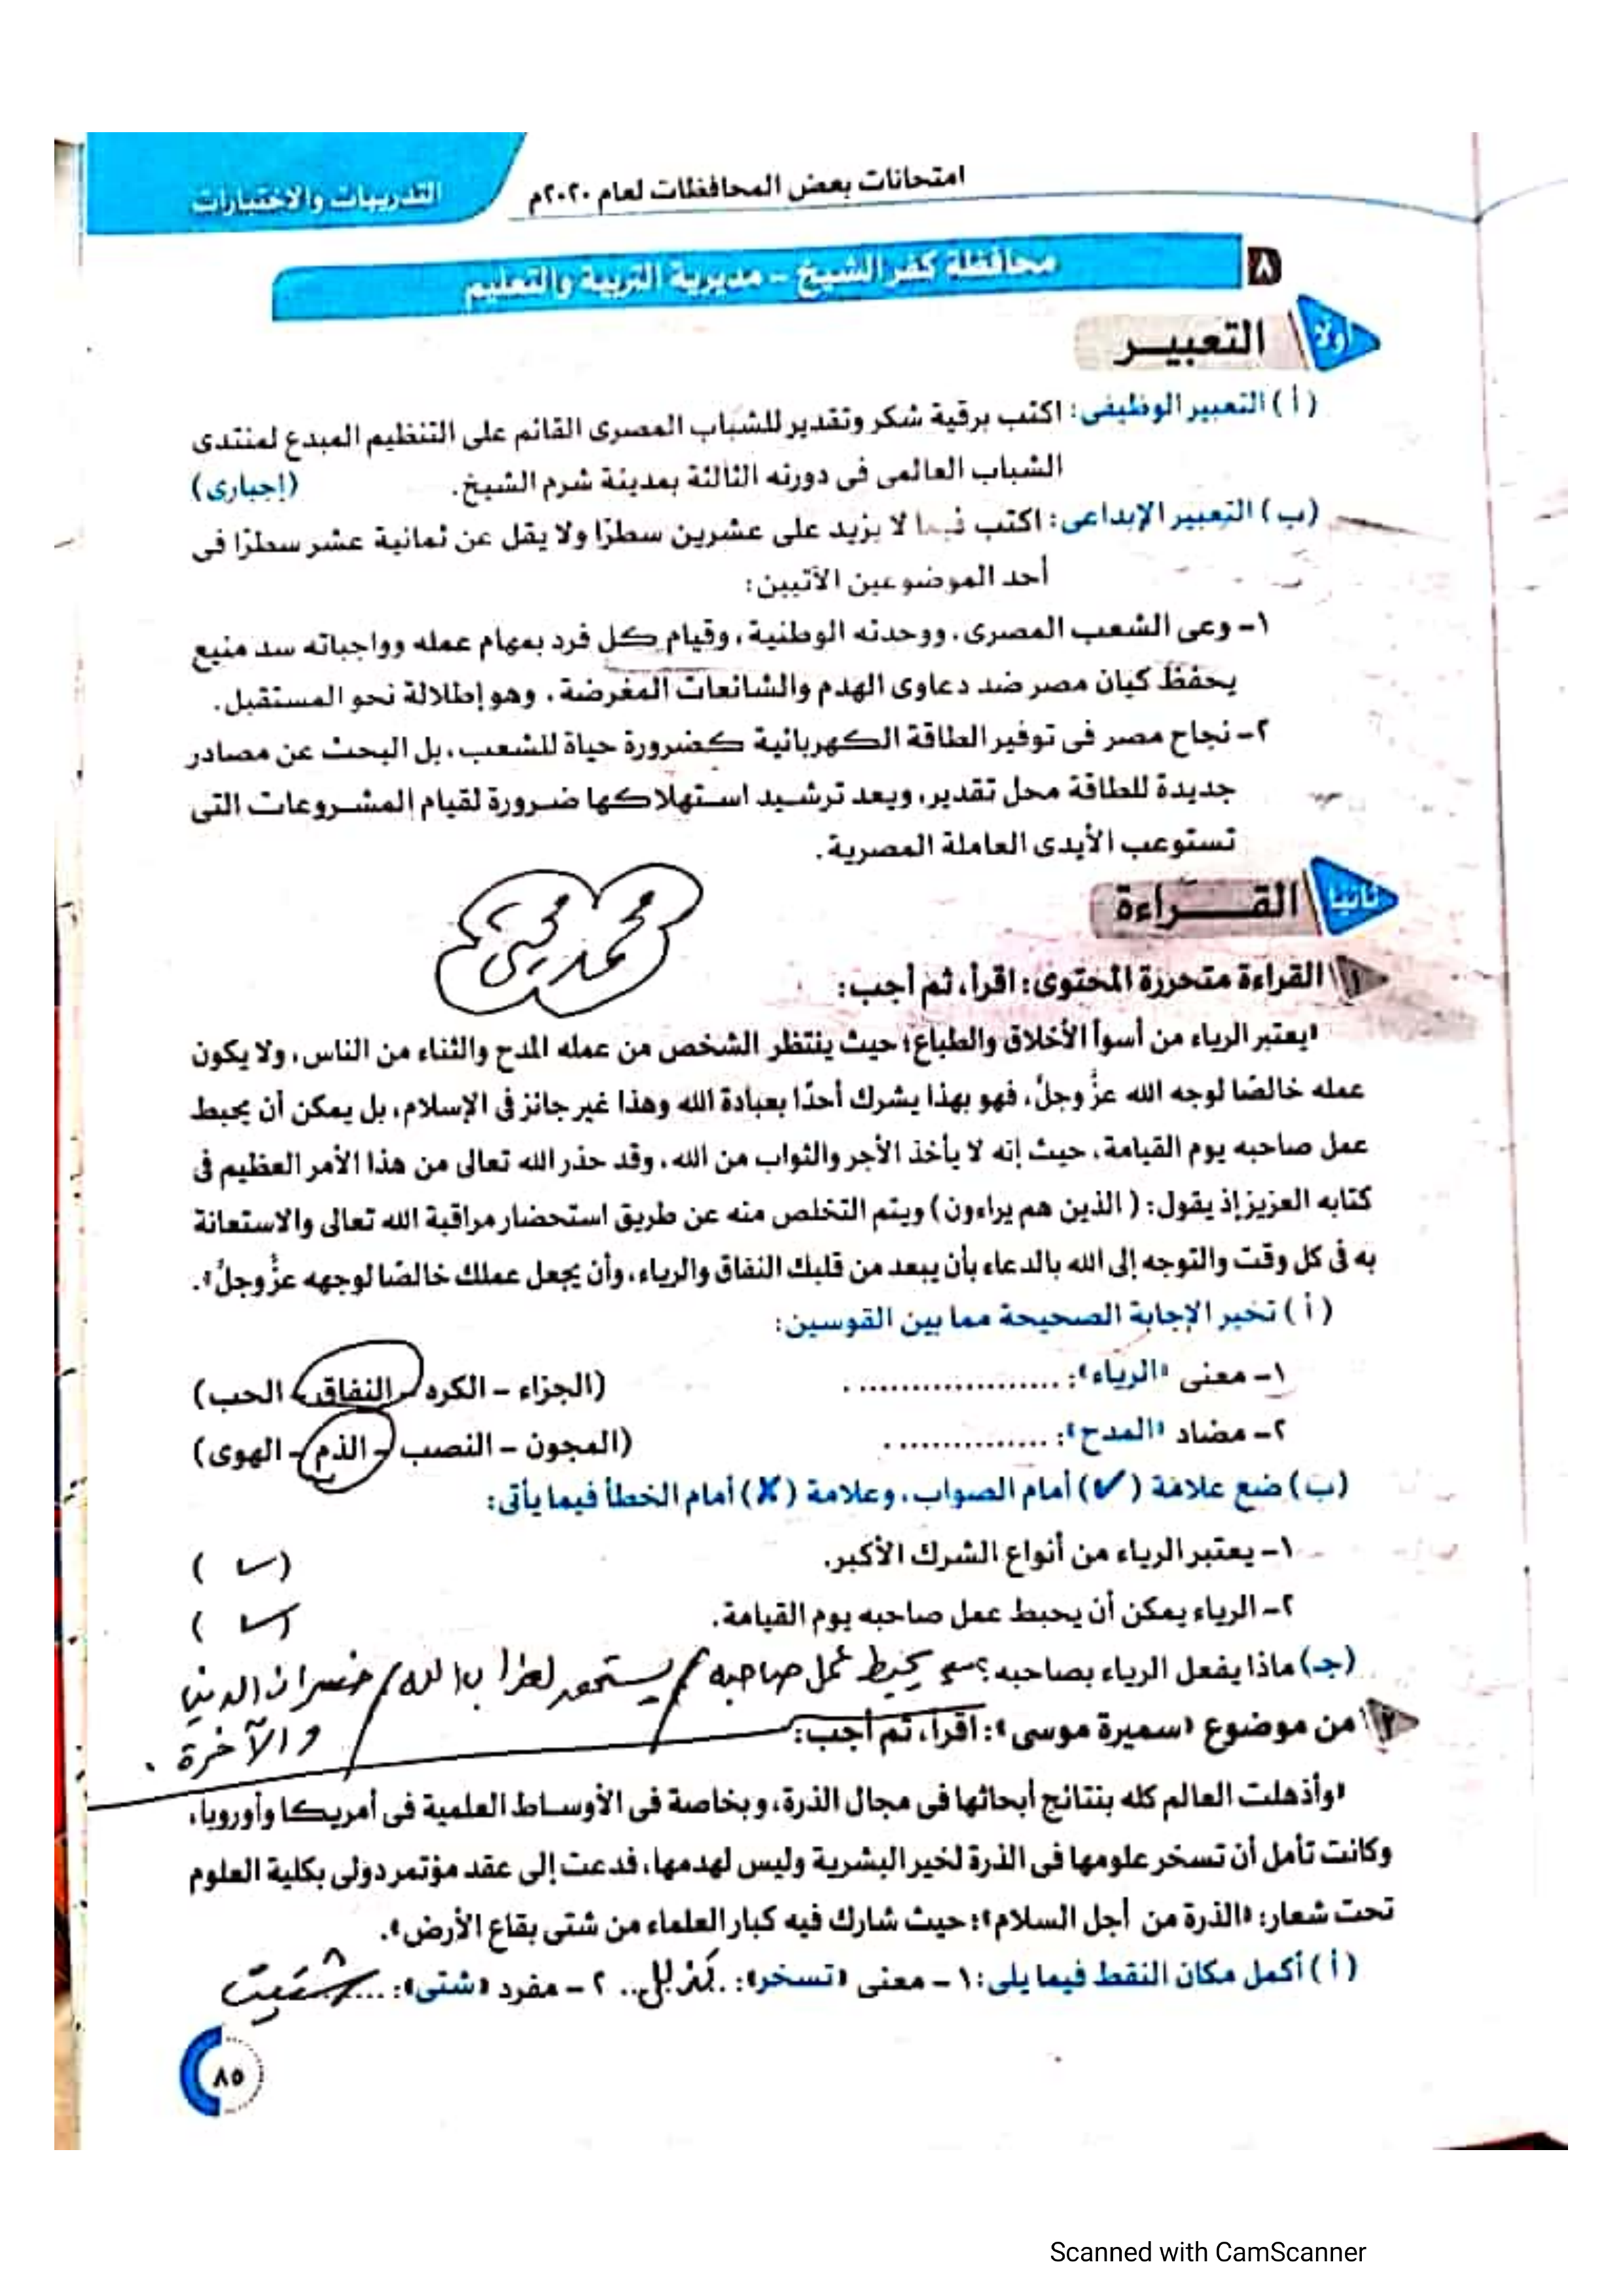 امتحانات بعض المحافظات لعام ٢٠٢٠م
التدريبات والاختبارات
٨ محافظة كفر الشيخ - مديرية التربية والتعليم
أولا التعبيــر
( أ ) التعبير الوظيفى: اكتب برقية شكر وتقدير للشباب المصرى القائم على التنظيم المبدع لمنتدى
الشباب العالمى فى دورته الثالثة بمدينة شرم الشيخ. (إجبارى)
(ب) التعبير الإبداعى: اكتب فيما لا يزيد على عشرين سطرًا ولا يقل عن ثمانية عشر سطرًا فى
أحد الموضوعين الآتيين:
١- وعى الشعب المصرى، ووحدته الوطنية، وقيام كل فرد بمهام عمله وواجباته سد منيع
يحفظ كيان مصر ضد دعاوى الهدم والشائعات المغرضة، وهو إطلالة نحو المستقبل.
٢- نجاح مصر فى توفير الطاقة الكهربائية كضرورة حياة للشعب، بل البحث عن مصادر
جديدة للطاقة محل تقدير، ويعد ترشيد استهلاكها ضرورة لقيام المشروعات التى
تستوعب الأيدى العاملة المصرية.
ثانيا القــــراءة
محمد
١ القراءة متحررة المحتوى: اقرأ، ثم أجب:
«يعتبر الرياء من أسوأ الأخلاق والطباع؛ حيث ينتظر الشخص من عمله المدح والثناء من الناس، ولا يكون
عمله خالصًا لوجه الله عزَّ وجلَّ، فهو بهذا يشرك أحدًا بعبادة الله وهذا غير جائز فى الإسلام، بل يمكن أن يحبط
عمل صاحبه يوم القيامة، حيث إنه لا يأخذ الأجر والثواب من الله، وقد حذر الله تعالى من هذا الأمر العظيم فى
كتابه العزيز إذ يقول: ( الذين هم يراءون) ويتم التخلص منه عن طريق استحضار مراقبة الله تعالى والاستعانة
به فى كل وقت والتوجه إلى الله بالدعاء بأن يبعد من قلبك النفاق والرياء، وأن يجعل عملك خالصًا لوجهه عزَّ وجلَّ».
( أ ) تخير الإجابة الصحيحة مما بين القوسين:
١- معنى «الرياء»: .................... . (الجزاء - الكره - النفاق - الحب)
٢- مضاد «المدح»: ................ . (المجون - النصب - الذم - الهوى)
(ب) ضع علامة (✓) أمام الصواب، وعلامة (✗) أمام الخطأ فيما يأتى:
١- يعتبر الرياء من أنواع الشرك الأكبر. ( )
٢- الرياء يمكن أن يحبط عمل صاحبه يوم القيامة. ( )
(جـ) ماذا يفعل الرياء بصاحبه؟ يحبط عمل صاحبه / يستحق لعذاب الله / خسران الدنيا
والآخرة .
٢ من موضوع «سميرة موسى»: اقرأ، ثم أجب:
«وأذهلت العالم كله بنتائج أبحاثها فى مجال الذرة، وبخاصة فى الأوساط العلمية فى أمريكا وأوروبا،
وكانت تأمل أن تسخر علومها فى الذرة لخير البشرية وليس لهدمها، فدعت إلى عقد مؤتمر دولى بكلية العلوم
تحت شعار: «الذرة من أجل السلام»؛ حيث شارك فيه كبار العلماء من شتى بقاع الأرض».
( أ ) أكمل مكان النقط فيما يلى: ١- معنى «تسخر»: ..... ٢- مفرد «شتى»: ... شتيت
٨٥
Scanned with CamScanner